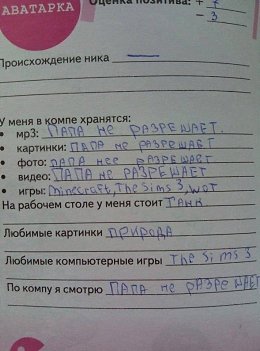 АВАТАРКА
Оценка позитива: +
- 3
Происхождение ника
У меня в компе хранятся:
• мр3: ПАПА НЕ РАЗРЕШАЕТ.
• картинки: ПАПА НЕ РАЗРЕШАЕТ
• фото: ПАПА НЕЕ РАЗРЕШАЕТ
• видео: ПАПА НЕ РАЗРЕШАЕТ
• игры: Minecraft, The Sims 3, WOT
На рабочем столе у меня стоит ТАНК
Любимые картинки ПРИРОДА
Любимые компьютерные игры The Sims 3
По компу я смотрю ПАПА НЕ РАЗРЕШАЕТ